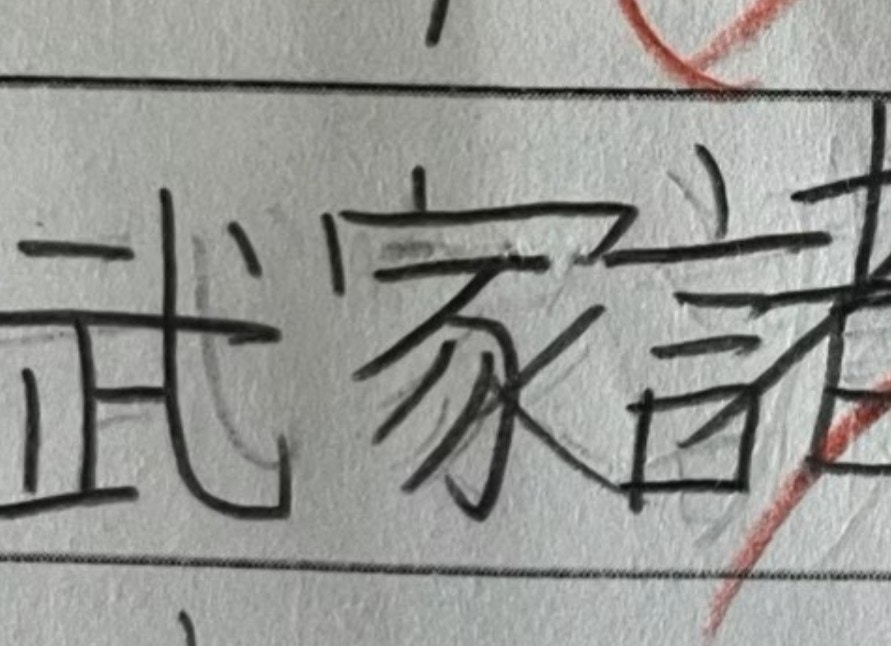 武家諸